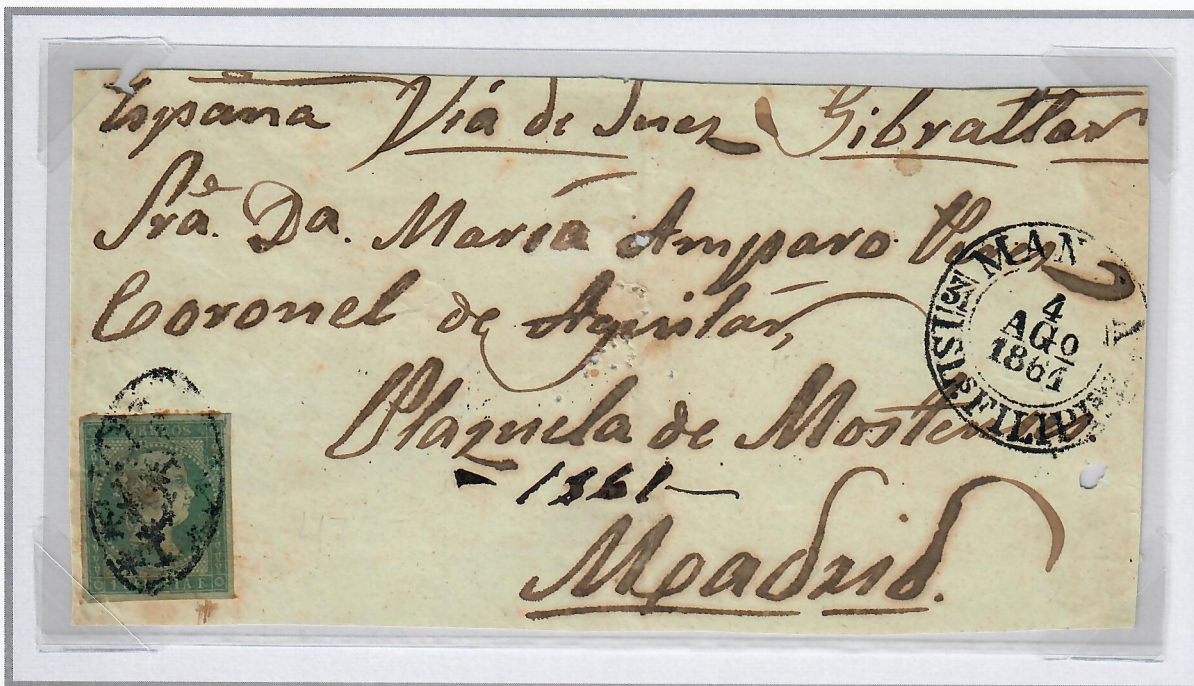 España Viá de Suez Gibraltar
Sra. Da. María Amparo
Coronel de Aguilar,
Plazuela de
1861
Madrid.
MAN A
4
AGO
1861
ISLS FILIPI
CORREOS